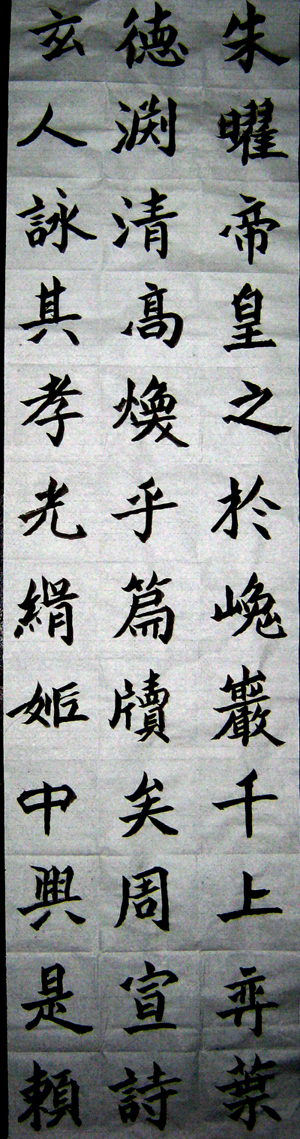 朱曜帝皇之於巉巖千上弈葉
德渕清高煥乎篇牘矣周宣詩
玄人詠其孝光緝姬中興是賴